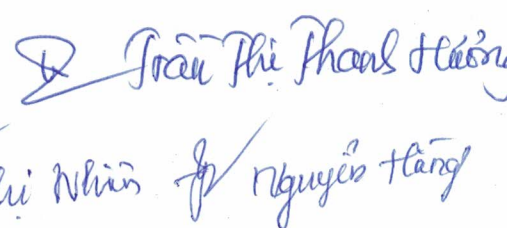 Trần Thị Thanh Hướng
Nhiên Nguyễn Hằng